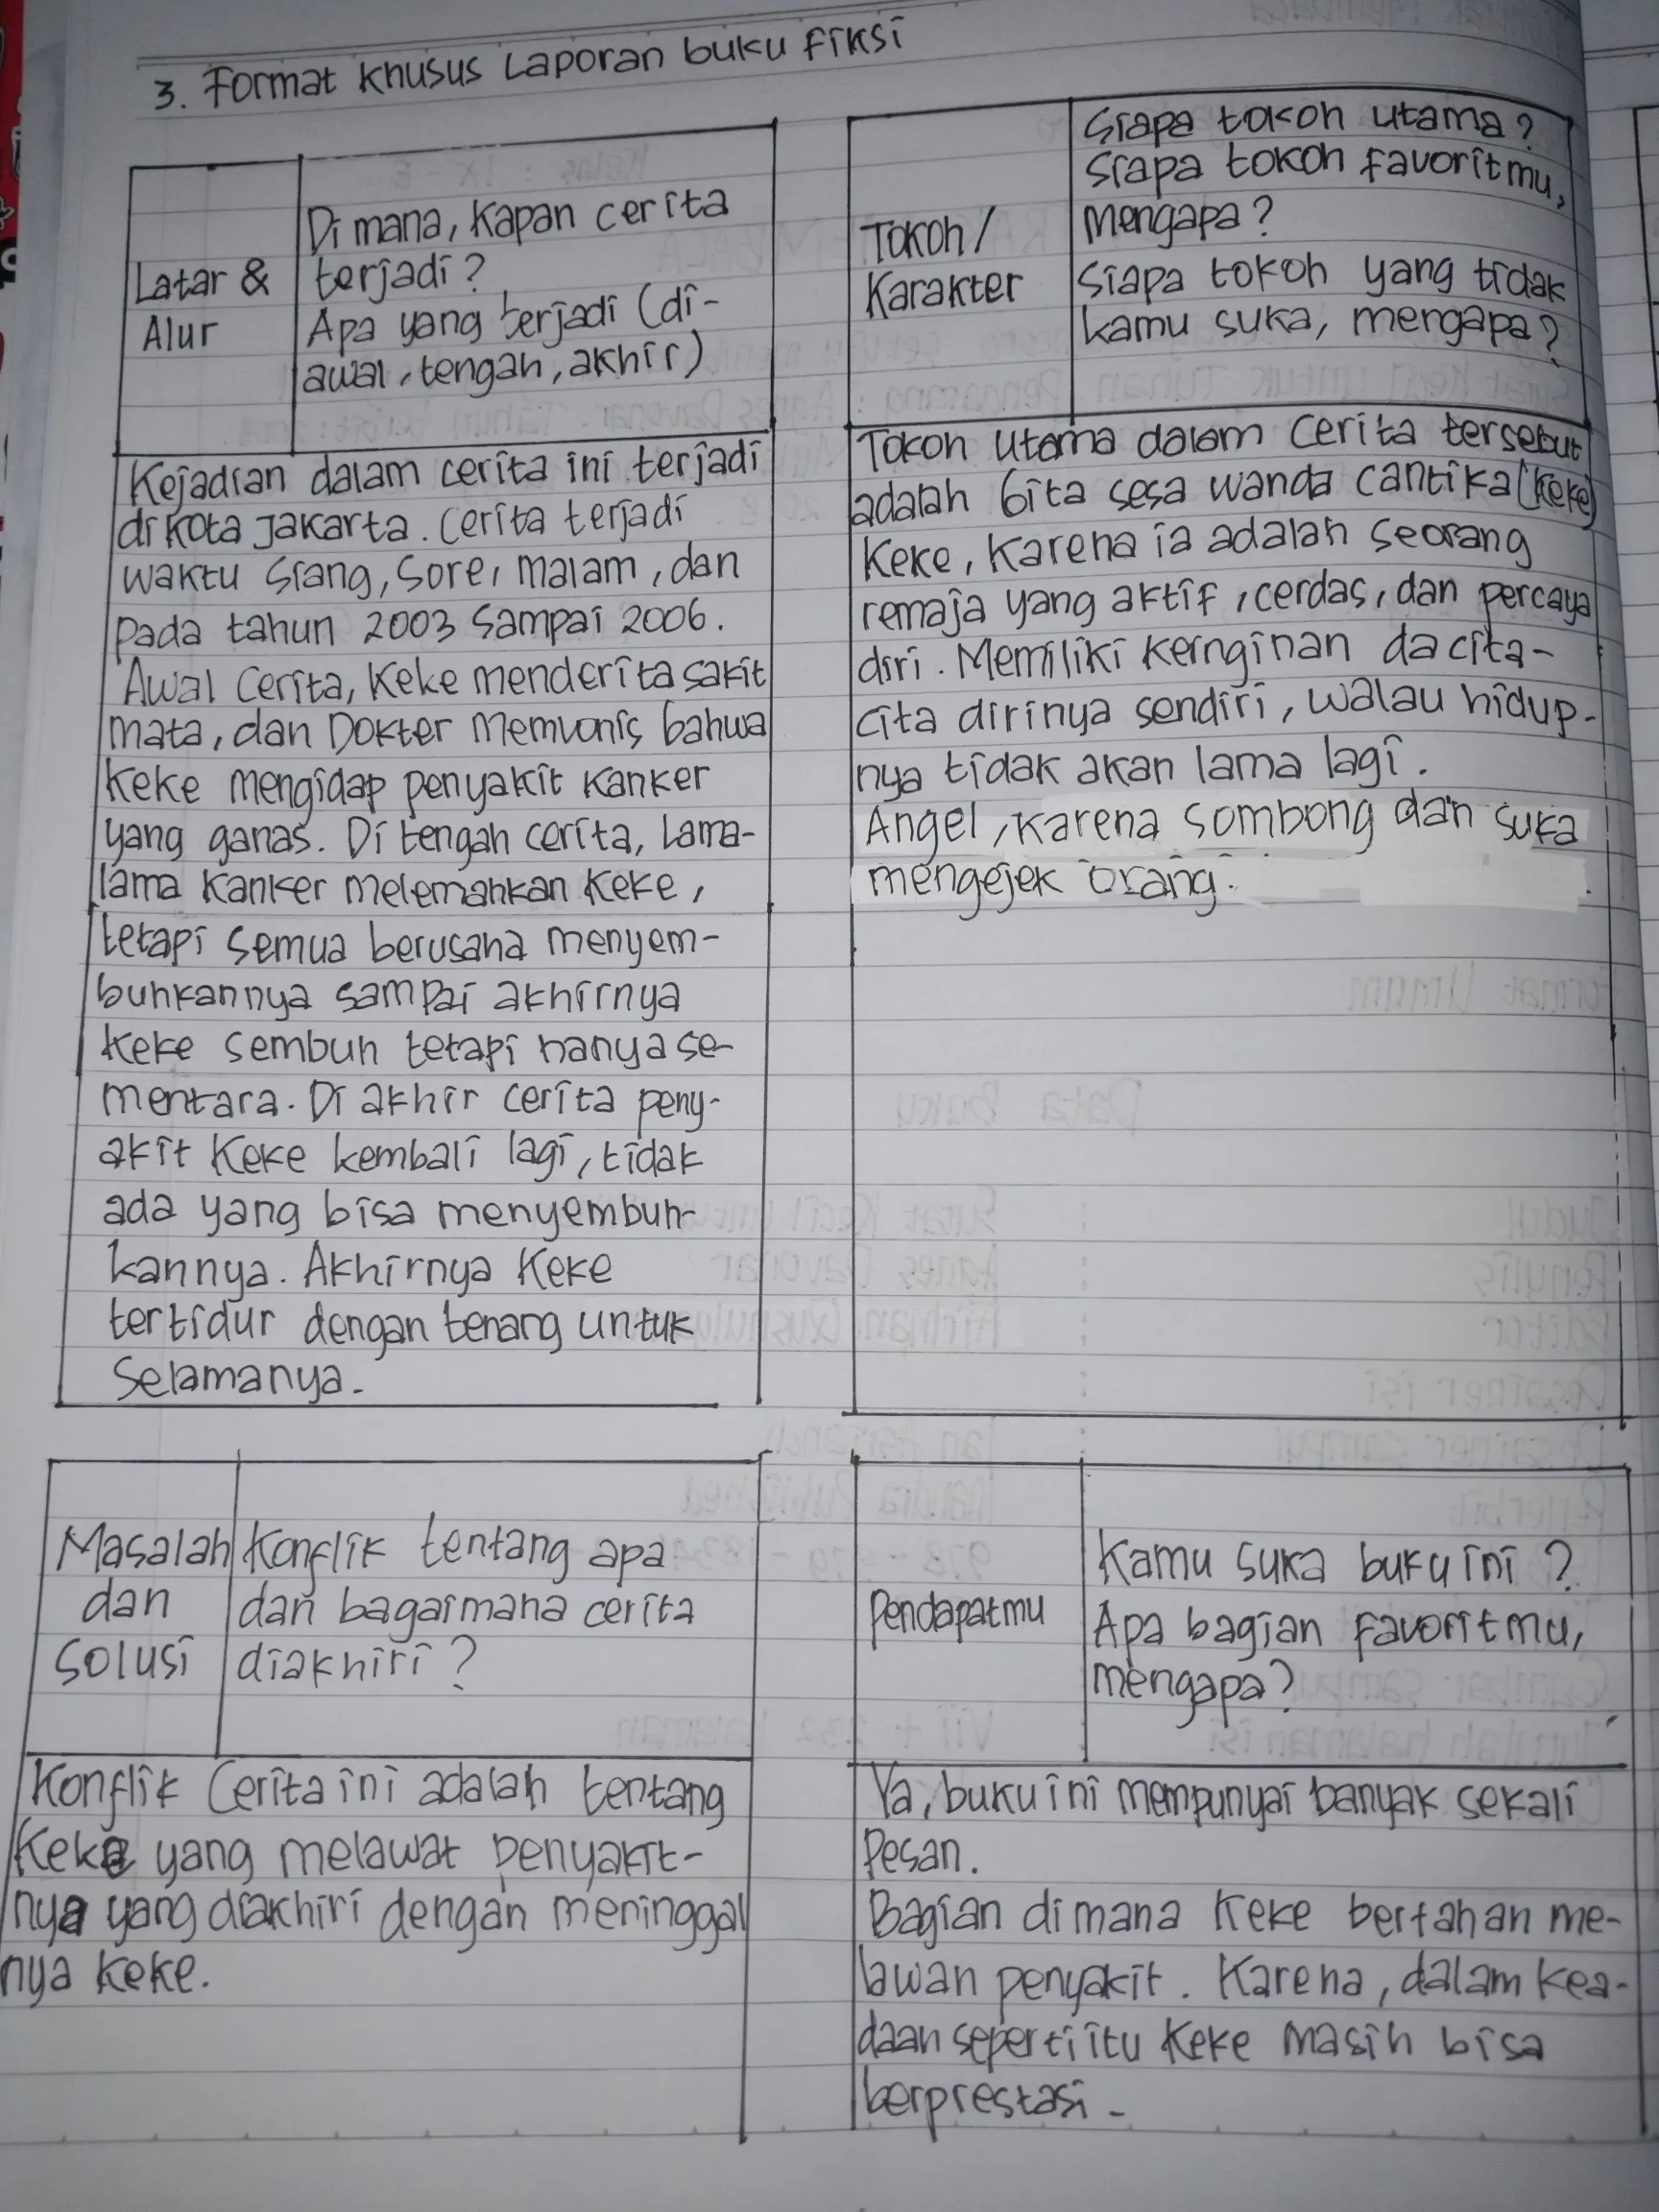 3. Format Khusus Laporan buku fiksi
Latar &
Alur
Di mana, Kapan cerita
terjadi?
Apa yang terjadi (di-
awal, tengah, akhir)
Kejadian dalam cerita ini terjadi
di kota Jakarta. Cerita terjadi
waktu siang, sore, malam, dan
pada tahun 2003 sampai 2006.
Awal Cerita, Keke menderita sakit
mata, dan Dokter Memvonis bahwa
Keke mengidap penyakit Kanker
yang ganas. Di tengah cerita, Lama-
lama Kanker melemahkan Keke,
tetapi semua berusaha menyem-
buhkannya sampai akhirnya
Keke sembuh tetapi hanya se-
mentara. Di akhir cerita peny-
akit Keke kembali lagi, tidak
ada yang bisa menyembuh-
kannya. Akhirnya Keke
tertidur dengan tenang untuk
Selamanya.
Tokoh /
Karakter
Siapa tokoh utama?
Siapa tokoh favoritmu,
Mengapa?
Siapa tokoh yang tidak
kamu suka, mengapa?
Tokoh utama dalam cerita tersebut
adalah Gita sesa wanda cantika (Keke)
Keke, Karena ia adalah seorang
remaja yang aktif, cerdas, dan percaya
diri. Memiliki keinginan da cita-
cita dirinya sendiri, walau hidup-
nya tidak akan lama lagi.
Angel, Karena sombong dan suka
mengejek orang.
Masalah
dan
Solusi
Konflik tentang apa
dan bagaimana cerita
diakhiri?
Konflik Cerita ini adalah tentang
Keke yang melawat penyakit-
nya yang diakhiri dengan meninggal
nya keke.
Pendapatmu
Kamu suka buku ini ?
Apa bagian favoritmu,
mengapa?
Ya, buku ini mempunyai banyak sekali
Pesan.
Bagian di mana Keke bertahan me-
lawan penyakit. Karena, dalam kea-
daan seperti itu Keke masih bisa
berprestasi.